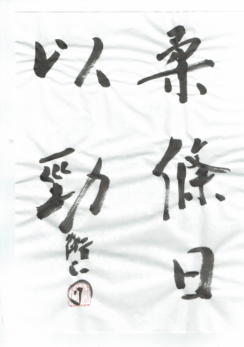 柔條日
以勁